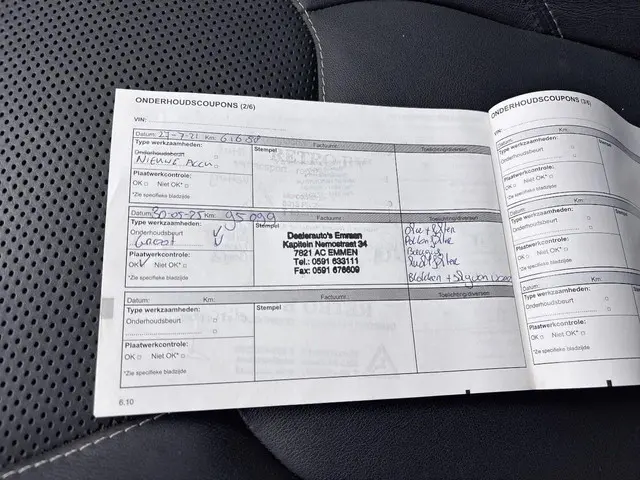 ONDERHOUDSCOUPONS (2/6)
VIN:
Datum: 27-7-21 Km: 61688 Factuurnr.: Toelichting/diversen
Type werkzaamheden: Stempel
Onderhoudsbeurt
NIEUWE ACCU
Plaatwerkcontrole:
OK Niet OK*
*Zie specifieke bladzijde
Datum: 30-05-25 Km: 95099 Factuurnr.: Toelichting/diversen
Type werkzaamheden: Stempel
Onderhoudsbeurt
Groot
Plaatwerkcontrole:
OK Niet OK*
*Zie specifieke bladzijde
Dealerauto's Emraan
Kapitein Nemostraat 34
7821 AC EMMEN
Tel.: 0591 633111
Fax: 0591 676609
olie + filter
Pollenfilter
Bougie
Luchtfilter
Blokken +
Datum: Km: Factuurnr.: Toelichting/diversen:
Type werkzaamheden: Stempel
Onderhoudsbeurt
Plaatwerkcontrole:
OK Niet OK*
*Zie specifieke bladzijde
6.10
ONDERHOUDSCOUPONS (3/6)
VIN:
Datum:
Type werkzaamheden:
Onderhoudsbeurt
Plaatwerkcontrole:
OK Niet OK*
*Zie specifieke bladzijde
Datum:
Type werkzaamheden:
Onderhoudsbeurt
Plaatwerkcontrole:
OK Niet OK*
*Zie specifieke bladzijde
Datum:
Type werkzaamheden:
Onderhoudsbeurt
Plaatwerkcontrole:
OK Niet OK*
*Zie specifieke bladzijde